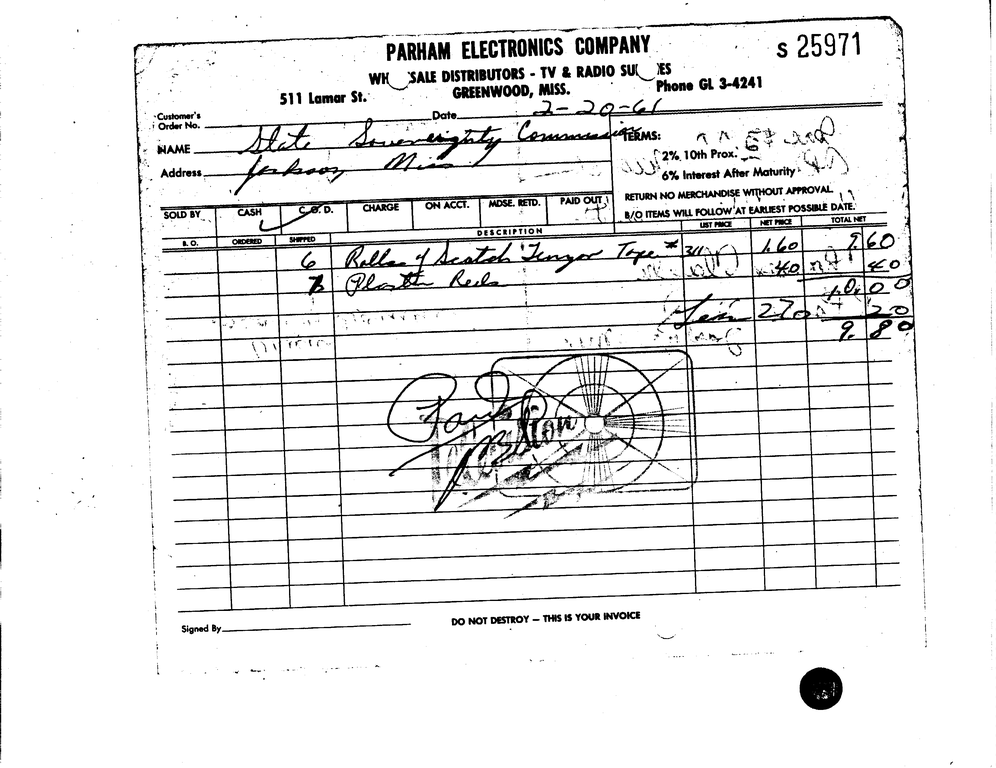 PARHAM ELECTRONICS COMPANY
S 25971
WH SALE DISTRIBUTORS - TV & RADIO SU ES
511 Lamar St.
GREENWOOD, MISS.
Phone GL 3-4241
Customer's
Order No.
Date 2-20-61
NAME State Sovereignty Commission
Address Jackson Miss
TERMS:
2% 10th Prox.
6% Interest After Maturity
RETURN NO MERCHANDISE WITHOUT APPROVAL.
B/O ITEMS WILL FOLLOW AT EARLIEST POSSIBLE DATE.
SOLD BY CASH C.O.D. CHARGE ON ACCT. MDSE. RETD. PAID OUT
B. O. ORDERED SHIPPED DESCRIPTION LIST PRICE NET PRICE TOTAL NET
6 Rolls of Scotch Tenzor Tape #311 1.60 9 60
Plastic Reels .40 40
10 00
Less 2% 20
9. 80
Paid
DO NOT DESTROY — THIS IS YOUR INVOICE
Signed By